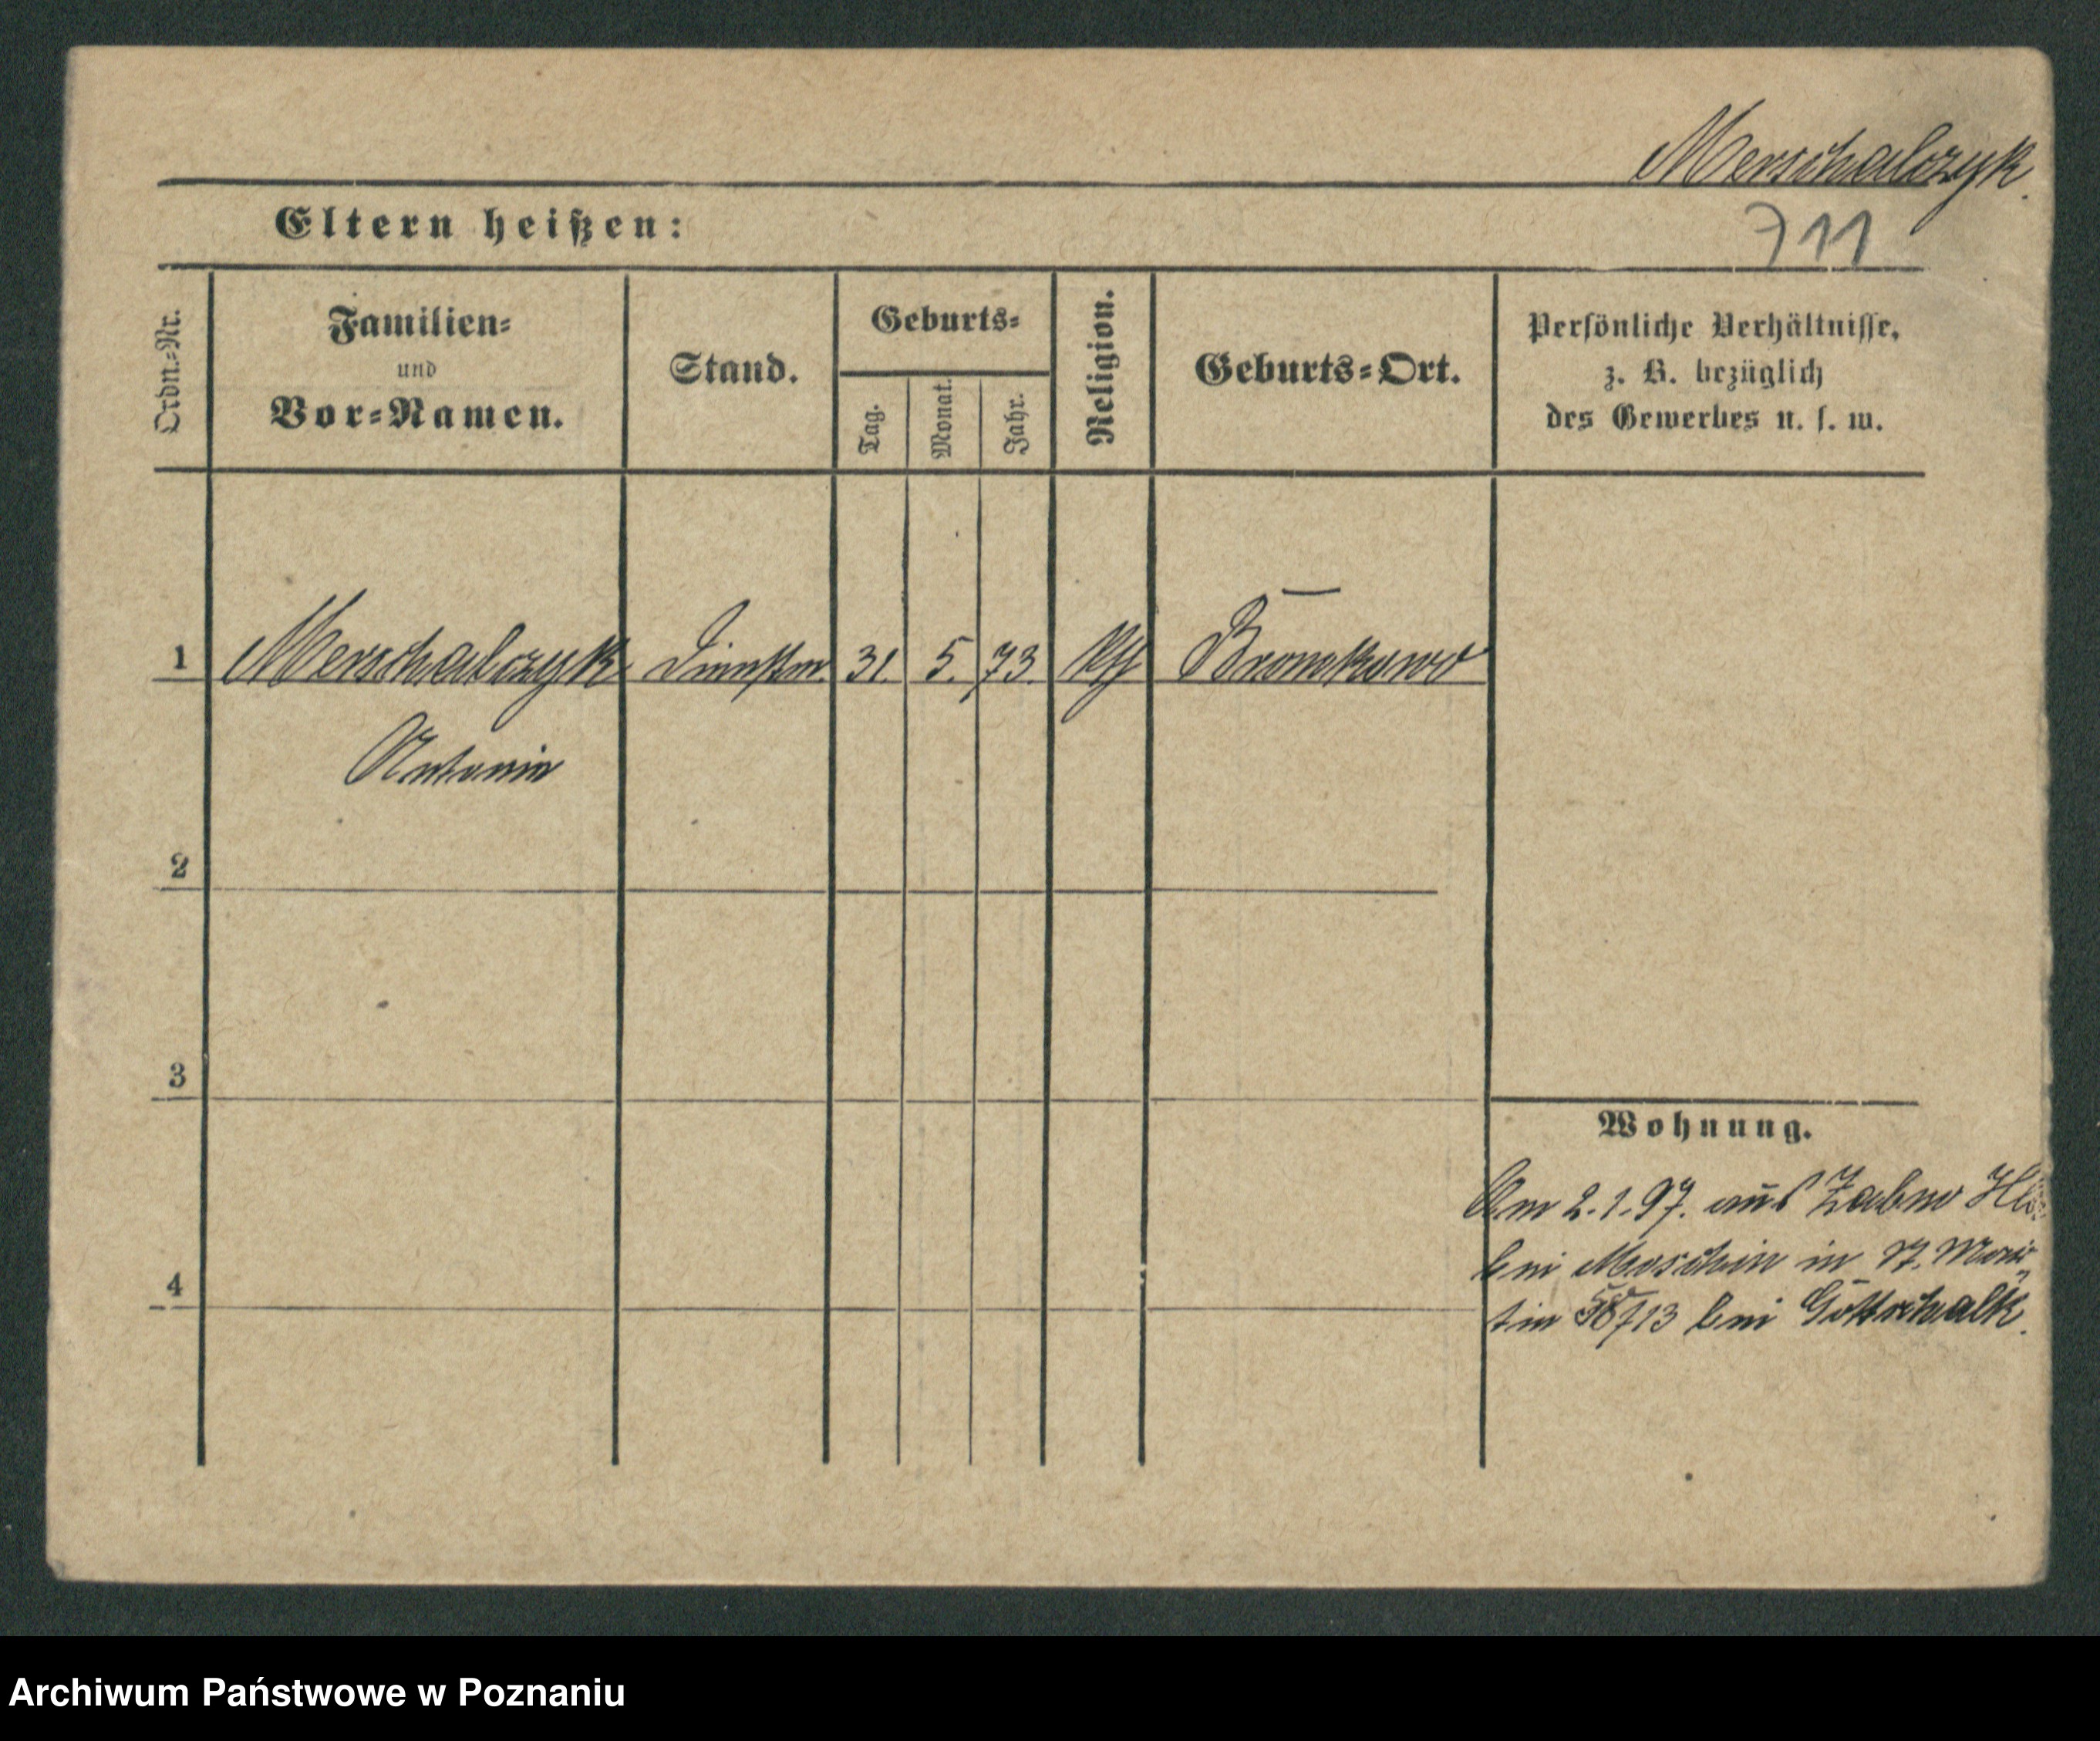 Merschalczyk.
Eltern heißen:
711
Ordn.=Nr.
Familien=
und
Vor=Namen.
Stand.
Geburts=
Tag.
Monat.
Jahr.
Religion.
Geburts=Ort.
Persönliche Verhältnisse,
z. B. bezüglich
des Gewerbes u. s. w.
1 Merschalczyk Dienstm. 31. 5. 73. kth Bromkowo
Antonin
2
3
Wohnung.
Am 2.1.97. aus Zabno
bei Moschin in St. Mar
tin 713 bei Gottschalk.
4
Archiwum Państwowe w Poznaniu